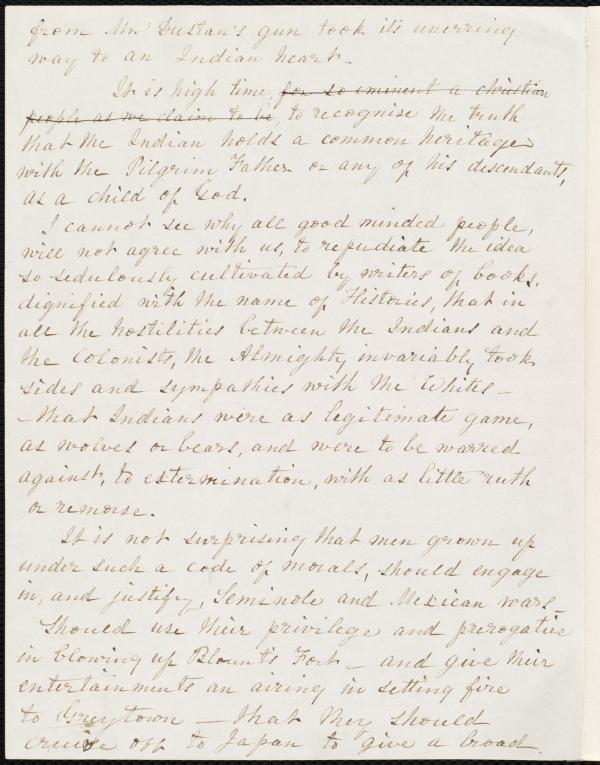 from Mr Dustan's gun took its unerring
way to an Indian heart.
It is high time, for so eminent a christian
people as we claim to be, to recognise the truth
that the Indian holds a common heritage
with the Pilgrim Father or any of his descendants,
as a child of God.
I cannot see why all good minded people,
will not agree with us, to repudiate the idea
so sedulously cultivated by writers of books,
dignified with the name of Histories, that in
all the hostilities between the Indians and
the Colonists, the Almighty invariably took
sides and sympathies with the Whites –
– that Indians were as legitimate game,
as wolves or bears, and were to be warred
against, to extermination, with as little ruth
or remorse.
It is not surprising that men grown up
under such a code of morals, should engage
in, and justify, Seminole and Mexican wars –
Should use their privilege and prerogative
in blowing up Blount's Fort – and give their
entertainments an airing in setting fire
to Greytown – that they should
cruise off to Japan to give a broad